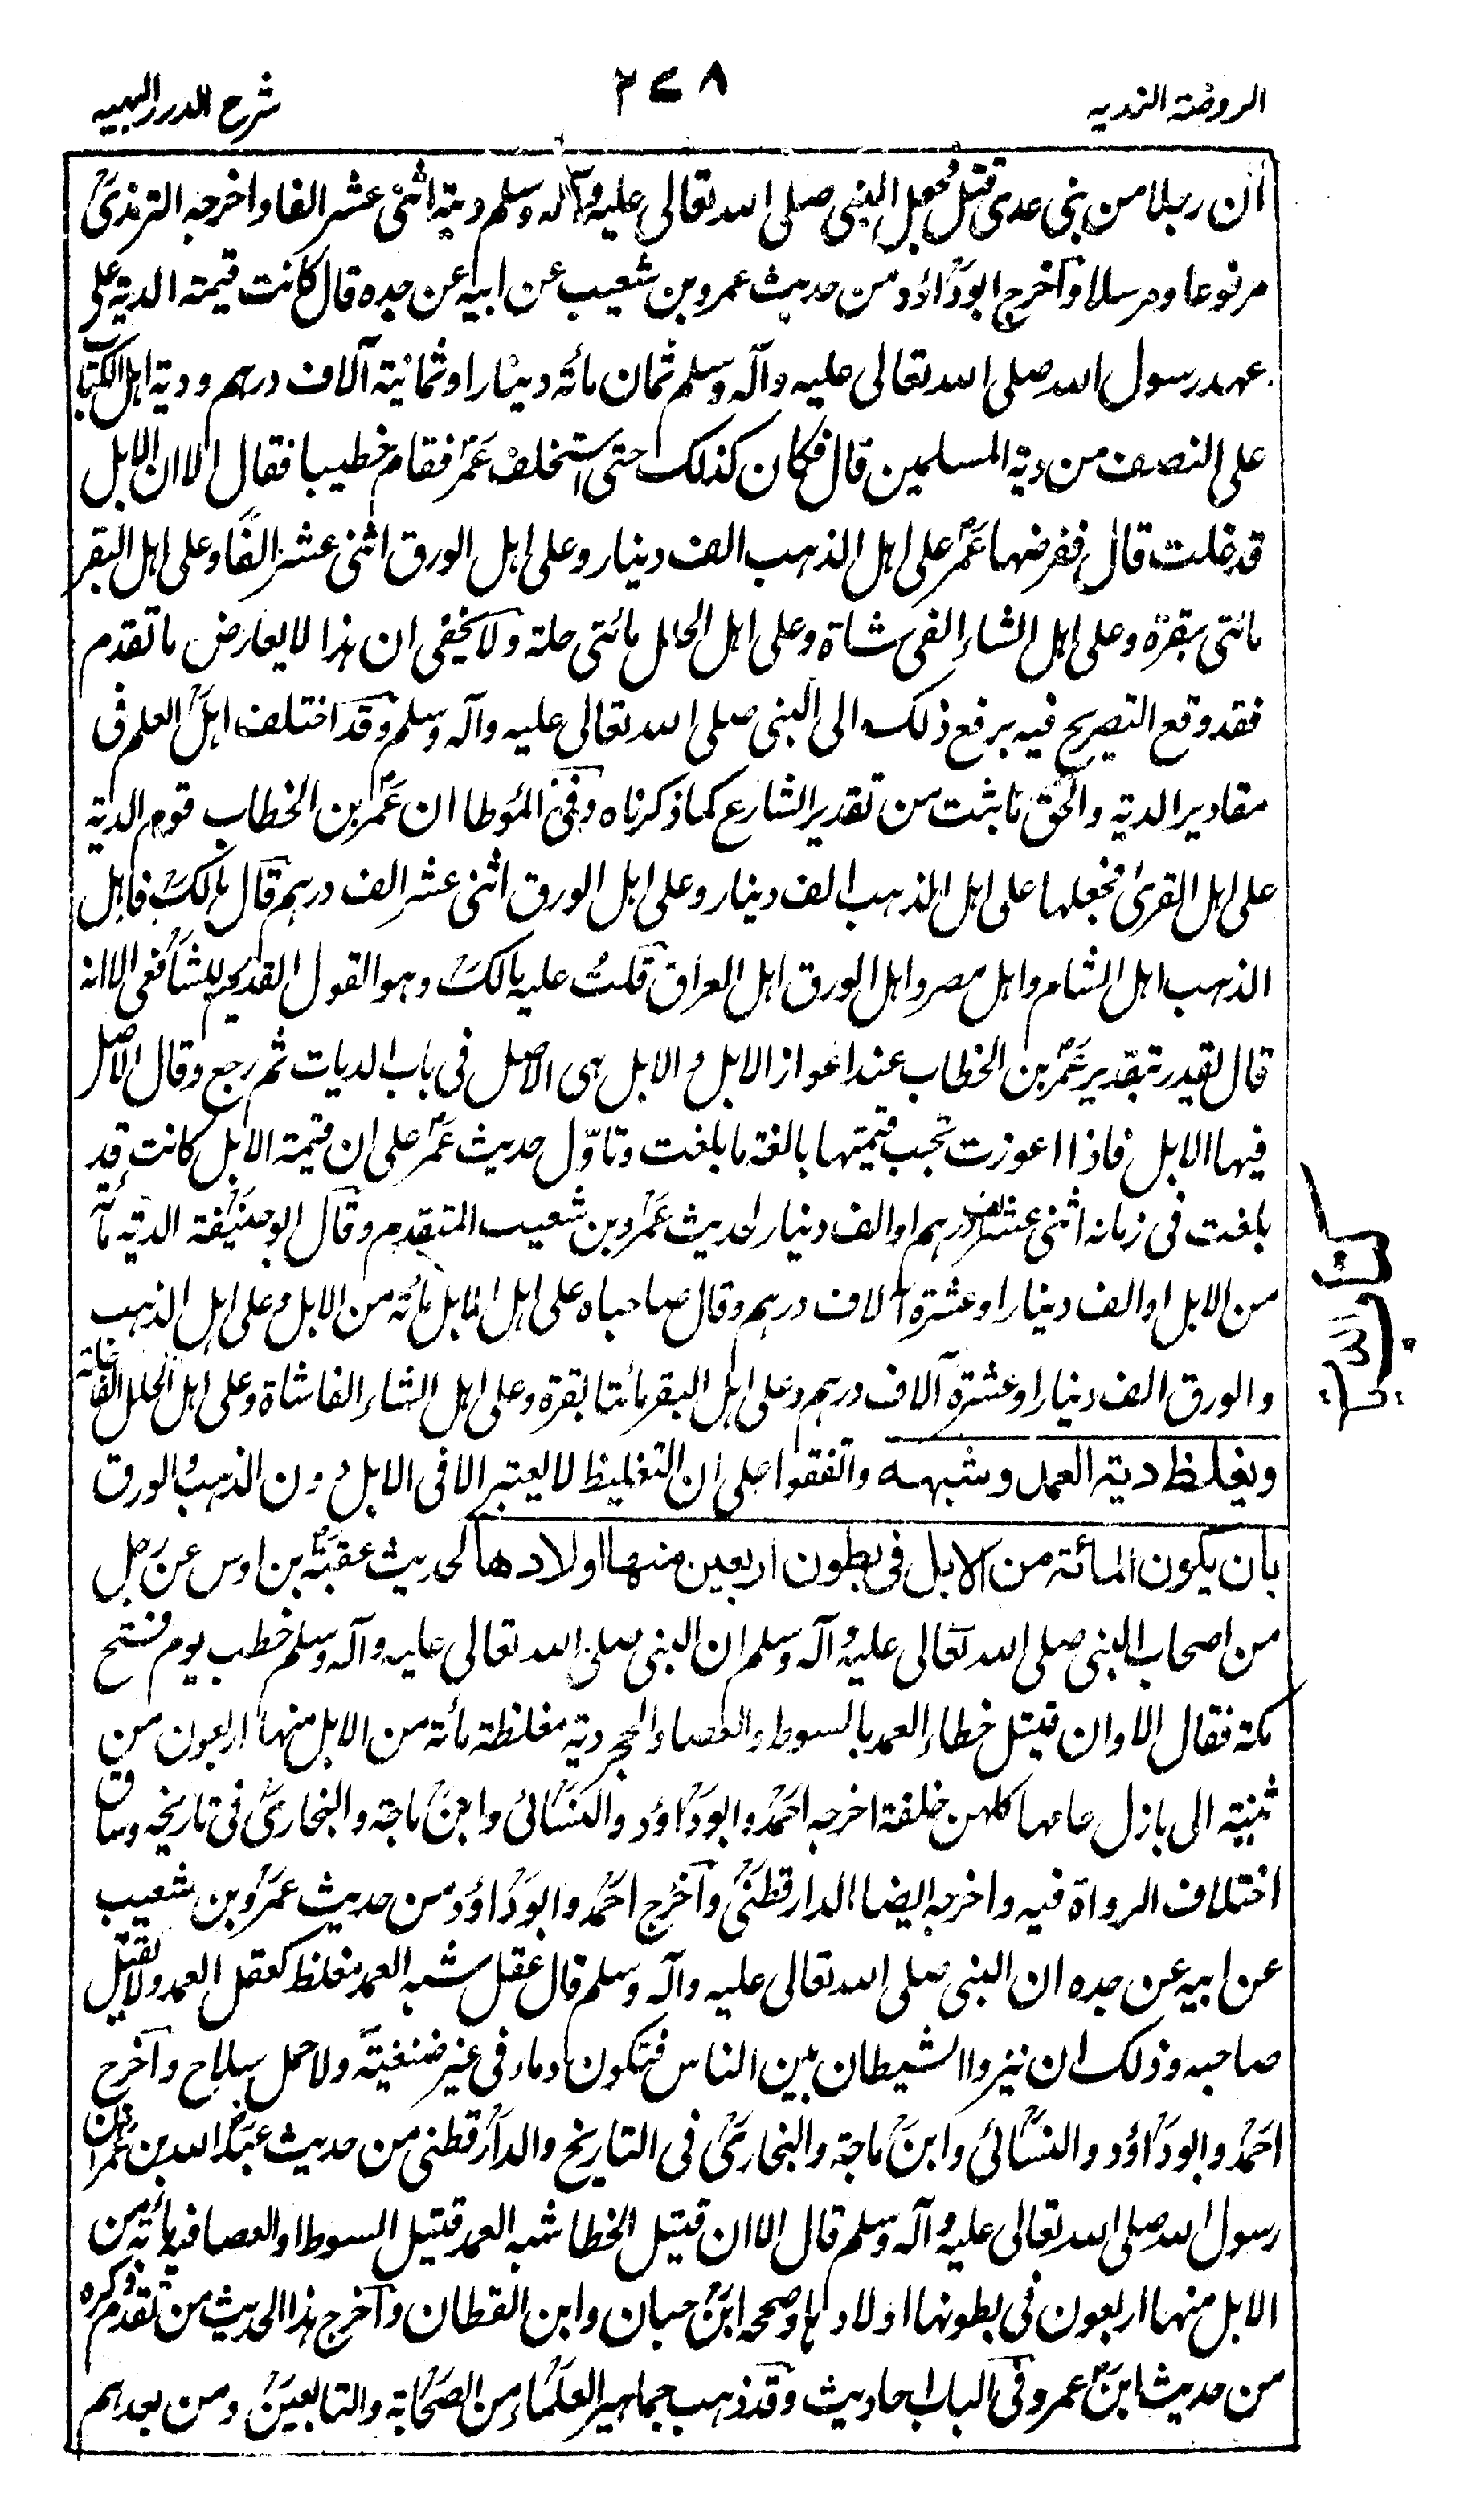 الروضة الندیه
۲۷۸
شرح الدرر البهیه
ان رجلا من بنی عدی قتل فجعل النبی صلی الله تعالی علیه وآله وسلم دیته اثنی عشر الفا واخرجه الترمذی
مرفوعا ومرسلا وآخرج ابوداؤد من حدیث عمرو بن شعیب عن ابیه عن جده قال کانت قیمته الدیة علی
عهد رسول الله صلی الله تعالی علیه وآله وسلم ثمان مائة دینار او ثمانیة آلاف درهم ودیة اهل الکتاب
علی النصف من دیة المسلمین قال فکان کذلک حتی استخلف عمر فقام خطیبا فقال الا ان الابل
قد غلت قال ففرضها عمر علی اهل الذهب الف دینار وعلی اهل الورق اثنی عشر الفا وعلی اهل البقر
مائتی بقرة وعلی اهل الشاء الفی شاة وعلی اهل الحلل مائتی حلة ولا یخفی ان هذا لا یعارض ما تقدم
فقد وقع التصریح فیه برفع ذلک الی النبی صلی الله تعالی علیه وآله وسلم وقد اختلف اهل العلم فی
مقادیر الدیة والحق ما ثبت من تقدیر الشارع کما ذکرناه وفی الموطا ان عمر بن الخطاب قوم الدیة
علی اهل القری فجعلها علی اهل الذهب الف دینار وعلی اهل الورق اثنی عشر الف درهم قال مالک فاهل
الذهب اهل الشام واهل مصر واهل الورق اهل العراق قلت علیه مالک وهو القول القدیم للشافعی الا انه
قال تقدر بتقدیر عمر بن الخطاب عند اعواز الابل والابل هی الاصل فی باب الدیات ثم رجع وقال الاصل
فیها الابل فاذا اعوزت تجب قیمتها بالغة ما بلغت وتاوّل حدیث عمر علی ان قیمة الابل کانت قد
بلغت فی زمانه اثنی عشر الف درهم او الف دینار لحدیث عمرو بن شعیب المتقدم وقال ابوحنیفة الدیة مائة
من الابل او الف دینار او عشرة آلاف درهم وقال صاحباه علی اهل الابل مائة من الابل وعلی اهل الذهب
والورق الف دینار او عشرة آلاف درهم وعلی اهل البقر مائتا بقرة وعلی اهل الشاء الفا شاة وعلی اهل الحلل الفا حلة
ویغلظ دیة العمد وشبهه واتفقوا علی ان التغلیظ لا یعتبر الا فی الابل دون الذهب والورق
بان یکون المائة من الابل فی بطون اربعین منها اولادها لحدیث عقبة بن اوس عن رجل
من اصحاب النبی صلی الله تعالی علیه وآله وسلم ان النبی صلی الله تعالی علیه وآله وسلم خطب یوم فتح
مکة فقال الا وان قتیل خطاء العمد بالسوط والعصا والحجر دیة مغلظة مائة من الابل منها اربعون من
ثنیة الی بازل عامها کلهن خلفة اخرجه احمد وابوداؤد والنسائی وابن ماجة والبخاری فی تاریخه وساق
اختلاف الرواة فیه واخرجه ایضا الدارقطنی وآخرج احمد وابوداؤد من حدیث عمرو بن شعیب
عن ابیه عن جده ان النبی صلی الله تعالی علیه وآله وسلم قال عقل شبه العمد مغلظ کعقل العمد ولا یقتل
صاحبه وذلک ان ینزوا الشیطان بین الناس فتکون دماء فی غیر ضغینة ولا حمل سلاح وآخرج
احمد وابوداؤد والنسائی وابن ماجة والبخاری فی التاریخ والدارقطنی من حدیث عبد الله بن عمر ان
رسول الله صلی الله تعالی علیه وآله وسلم قال الا ان قتیل الخطا شبه العمد قتیل السوط او العصا فیه مائة من
الابل منها اربعون فی بطونها اولادها وصححه ابن حبان وابن القطان وآخرج هذا الحدیث من تقدم ذکره
من حدیث ابن عمرو فی الباب احادیث وقد ذهب جماهیر العلماء من الصحابة والتابعین ومن بعدهم